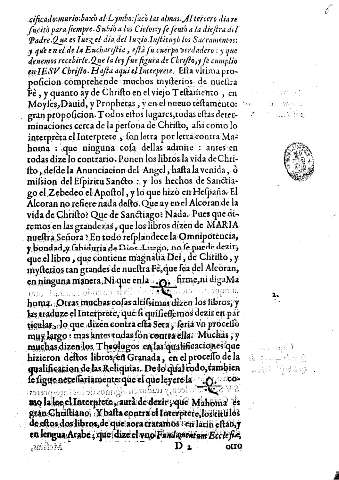 cificado: murio: baxò al Lymbo: sacò las almas. Al tercero dia re
sucitò para siempre. Subiò a los Cielos: y se sentò a la diestra del
Padre. Que es Iuez el dia del Iuzio. Instituyò los Sacramentos:
y que en el de la Eucharistia, està su cuerpo verdadero: y que
devemos recebirle. Que la ley fue figura de Christo, y se cumplio
en IESV Christo. Hasta aqui el Interprete. Esta vltima pro
posicion comprehende muchos mysterios de nuestra
Fè, y quanto ay de Christo en el viejo Testamento, en
Moyses, Dauid, y Prophetas, y en el nueuo testamento:
gran proposicion. Todos estos lugares, todas estas deter-
minaciones cerca de la persona de Christo, assi como lo
interpreta el Interprete, son letra por letra contra Ma-
homa: que ninguna cosa dellas admite: antes en
todas dize lo contrario. Ponen los libros la vida de Chri-
sto, desde la Anunciacion del Angel, hasta la venida, ò
mission del Espiritu Sancto: y los hechos de Sanctia-
go el Zebedeo el Apostol, y lo que hizo en Hespaña. El
Alcoran no refiere nada desto. Que ay en el Alcoran de la
vida de Christo? Que de Sanctiago? Nada. Pues que di-
remos en las grandezas, que los libros dizen de MARIA
nuestra Señora? En todo resplandece la Omnipotencia,
y bondad, y sabiduria de Dios. Luego, no se puede dezir,
que el libro, que contiene magnalia Dei, de Christo, y
mysterios tan grandes de nuestra Fè, que sea del Alcoran,
en ninguna manera. Ni que en la firme, ni diga Ma
homa. Otras muchas cosas altissimas dizen los libros, y
las traduze el Interprete, que si quisiessemos dezir en par
ticular, lo que dizen contra esta Seta, seria vn processo
muy largo: mas antes todas son contra ella. Muchas, y
muchas dizen los Theologos en las qualificaciones que
hizieron destos libros en Granada, en el processo de la
qualificacion de las Reliquias. De lo qual todo, tambien
se sigue necessariamente: que el que leyere la co-
mo la lee el Interprete, aurà de dezir, que Mahoma es
gran Christiano. Y basta contra el Interprete, los titulos
de estos dos libros, de que aora tratamos: en latin estàn, y
en lengua Arabe, que dize el vno Fundamentum Ecclesiæ,
D 2 otro
2.